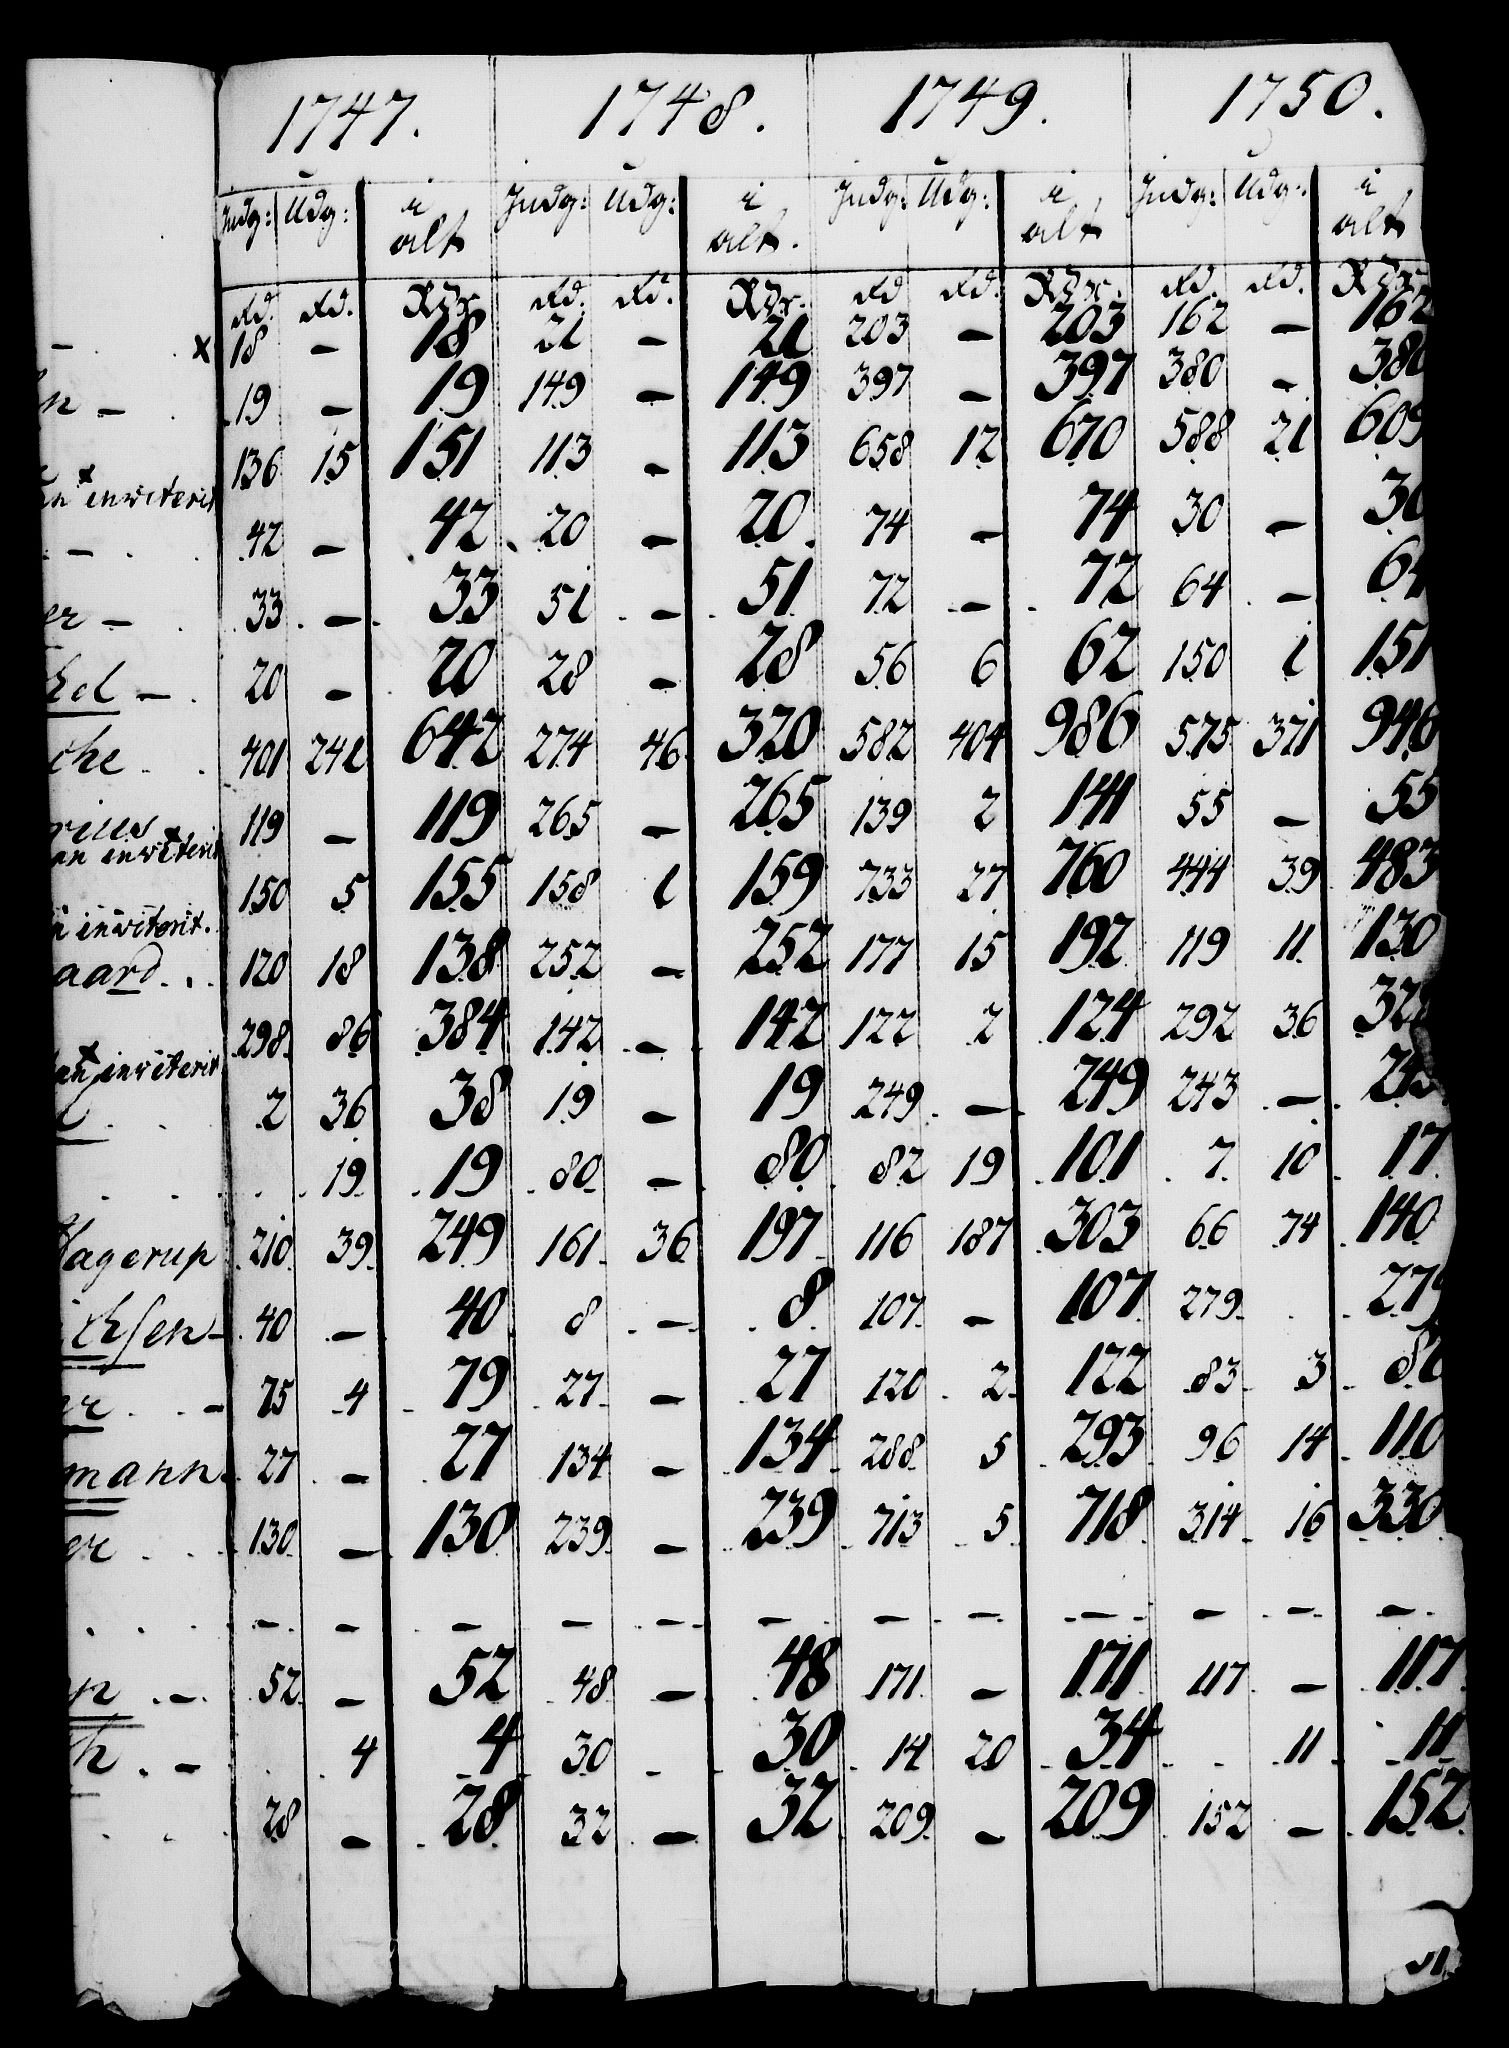 1747. 1748. 1749. 1750.
Indg: Udg: i alt Indg: Udg: i alt. Indg: Udg: i alt Indg: Udg: i alt
Rd. Rd. Rdr. Rd. Rd. Rdr. Rd Rd. Rdr. Rd. Rd. Rdr.
– x 18 – 18 21 – 21 203 – 203 162 – 162
n – 19 – 19 149 – 149 397 – 397 380 – 380
136 15 151 113 – 113 658 12 670 588 21 609
an inviterit
– 42 – 42 20 – 20 74 – 74 30 – 30
er – 33 – 33 51 – 51 72 – 72 64 – 64
hd – 20 – 20 28 – 28 56 6 62 150 1 151
che 401 241 642 274 46 320 582 404 986 575 371 946
rius 119 – 119 265 – 265 139 2 141 55 – 55
an inviterit
150 5 155 158 1 159 733 27 760 444 39 483
n inviterit.
aard 120 18 138 252 – 252 177 15 192 119 11 130
298 86 384 142 – 142 122 2 124 292 36 328
an inviterit
2 36 38 19 – 19 249 – 249 243 – 243
19 19 80 – 80 82 19 101 7 10 17
Hagerup 210 39 249 161 36 197 116 187 303 66 74 140
ichsen – 40 – 40 8 – 8 107 – 107 279 279
er – 75 4 79 27 – 27 120 2 122 83 3 86
mann 27 – 27 134 – 134 288 5 293 96 14 110
er 130 – 130 239 – 239 713 5 718 314 16 330
– – – – – – – – – – – –
p – 52 – 52 48 – 48 171 – 171 117 – 117
h – 4 4 30 30 14 20 34 11 11
28 – 28 32 – 32 209 – 209 152 – 152